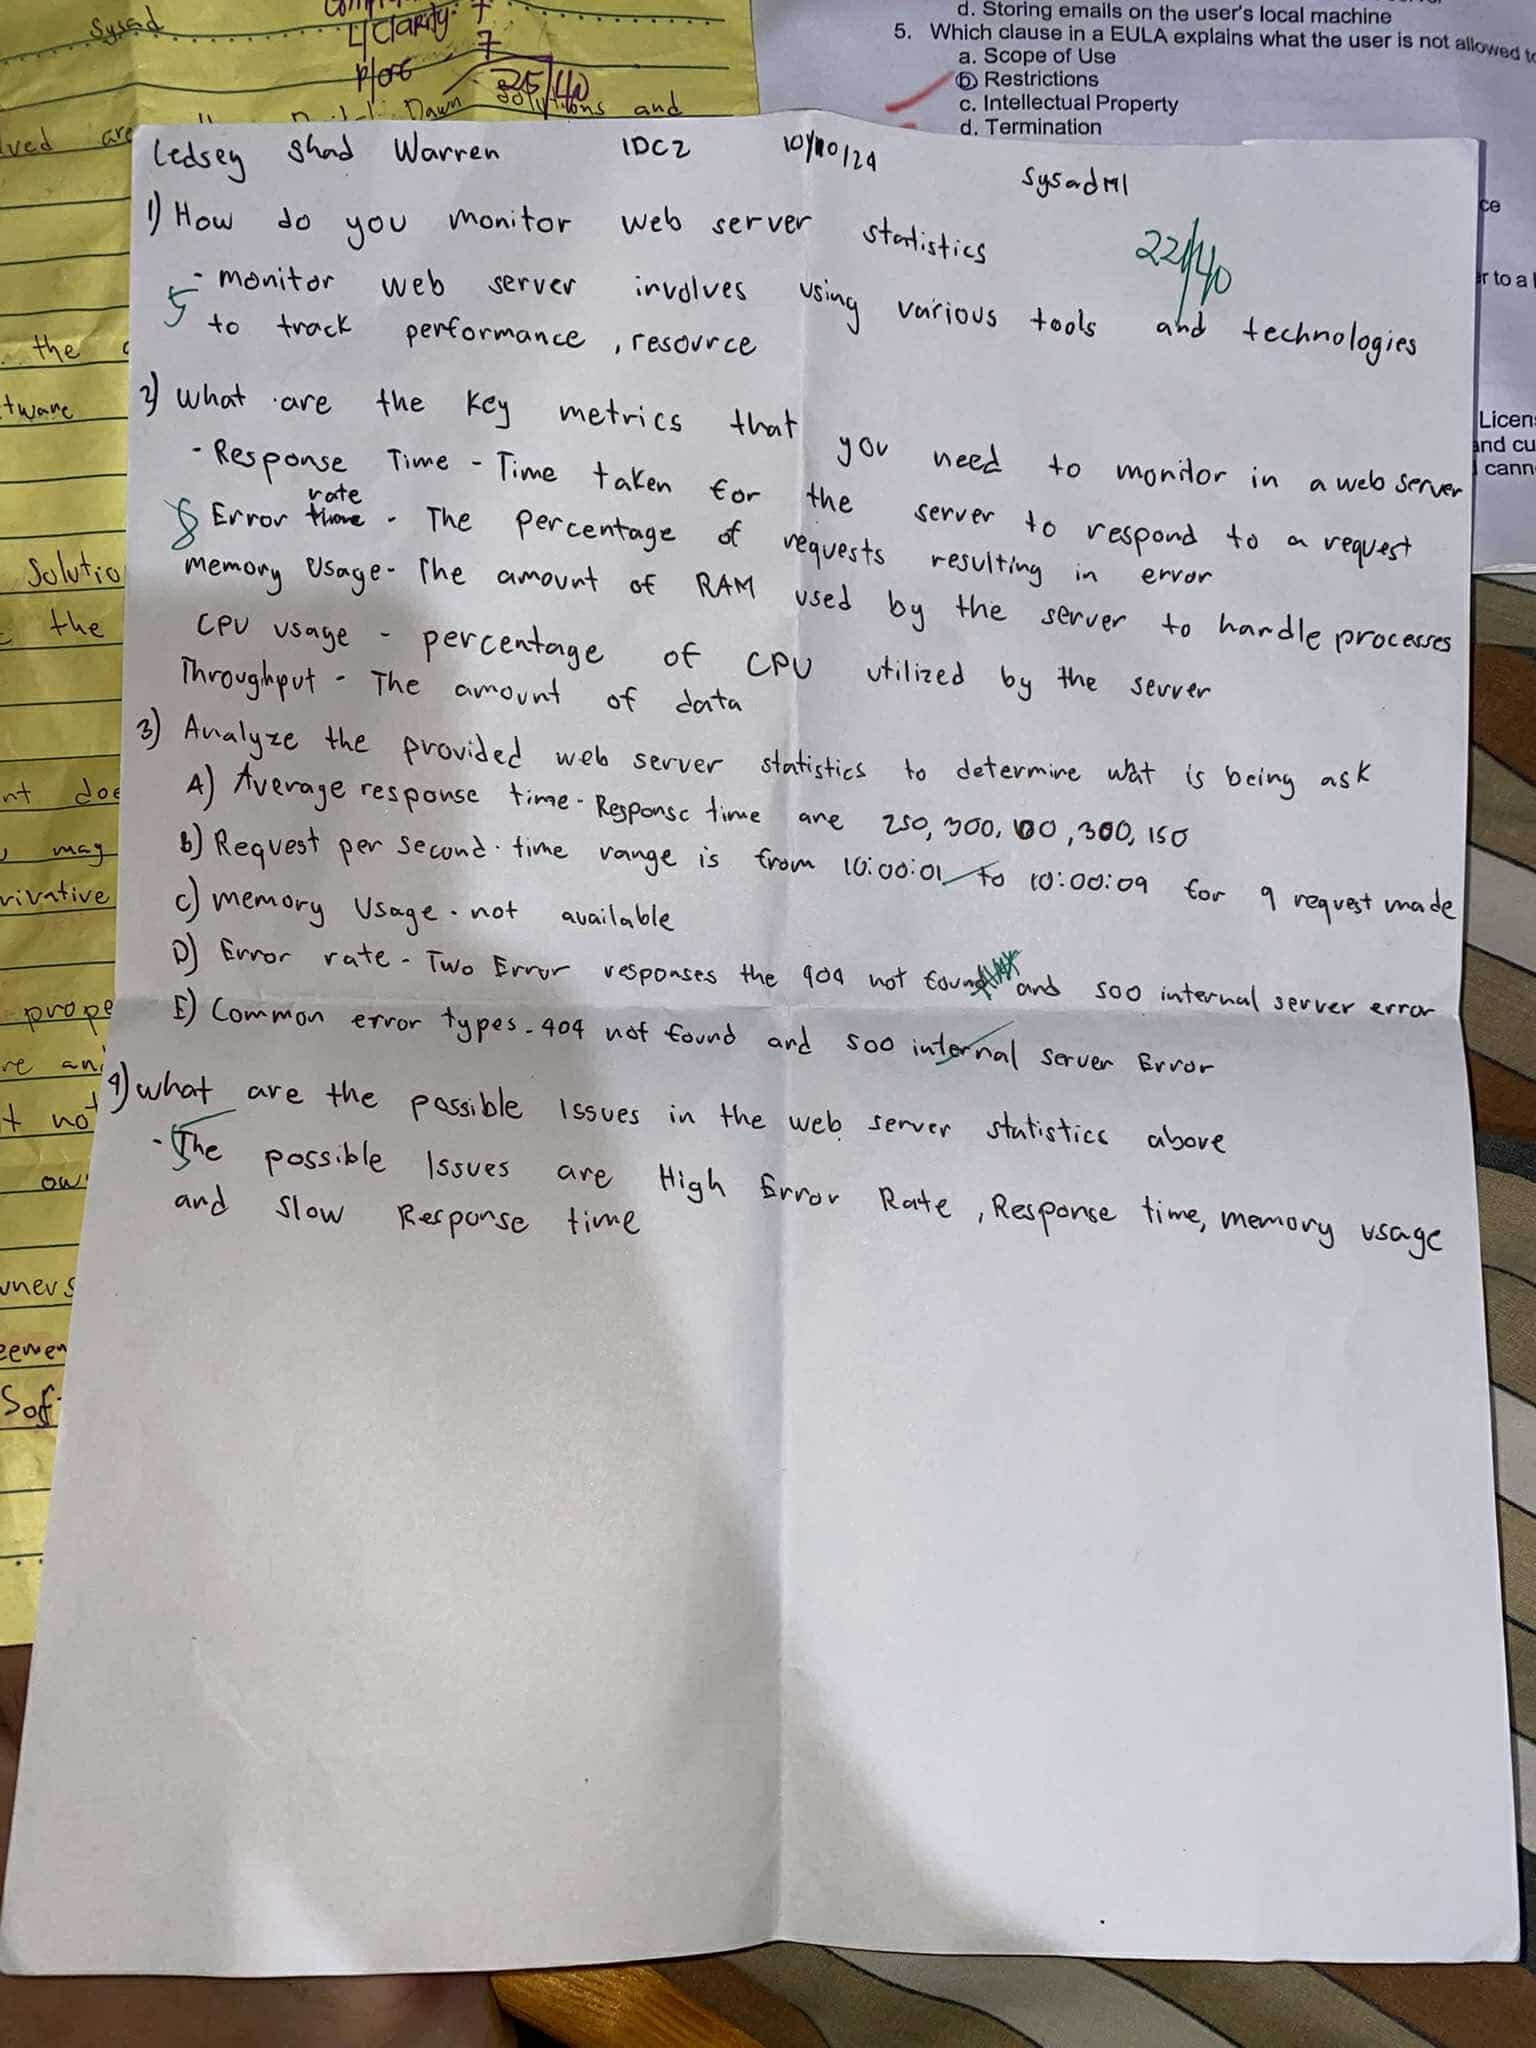 Sysad
Clarity. 7
7
35/40
Dawn solutions and
lved are
d. Storing emails on the user's local machine
5. Which clause in a EULA explains what the user is not allowed to
a. Scope of Use
b. Restrictions
c. Intellectual Property
d. Termination
ce
er to a
Licens
and cu
cann
Ledsey Shad Warren IDC2 10/10/24
SysadM1
22/40
1) How do you monitor web server statistics
- monitor web server involves using various tools and technologies
5
to track performance, resource
2) What are the key metrics that you need to monitor in a web server
- Response Time - Time taken for the server to respond to a request
8 Error rate - The percentage of requests resulting in error
memory Usage - The amount of RAM used by the server to handle processes
CPU usage - percentage of CPU utilized by the server
Throughput - The amount of data
3) Analyze the provided web server statistics to determine wat is being ask
A) Average response time - Response time are 250, 300, 100, 300, 150
b) Request per second - time range is from 10:00:01 to 10:00:09 for 9 request made
C) memory Usage - not available
D) Error rate - Two Error responses the 404 not found and 500 internal server error
E) Common error types - 404 not found and 500 internal server Error
4) what are the possible Issues in the web server statistics above
5
- The possible Issues are High Error Rate, Response time, memory usage
and slow Response time
the
tware
Solutio
the
nt doe
may
rivative
prope
re an
t not
ow
wners
eemen
Sof